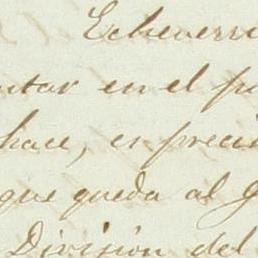 Echeverri
ntar en el pu
hace, es preci
que queda al G
Division del